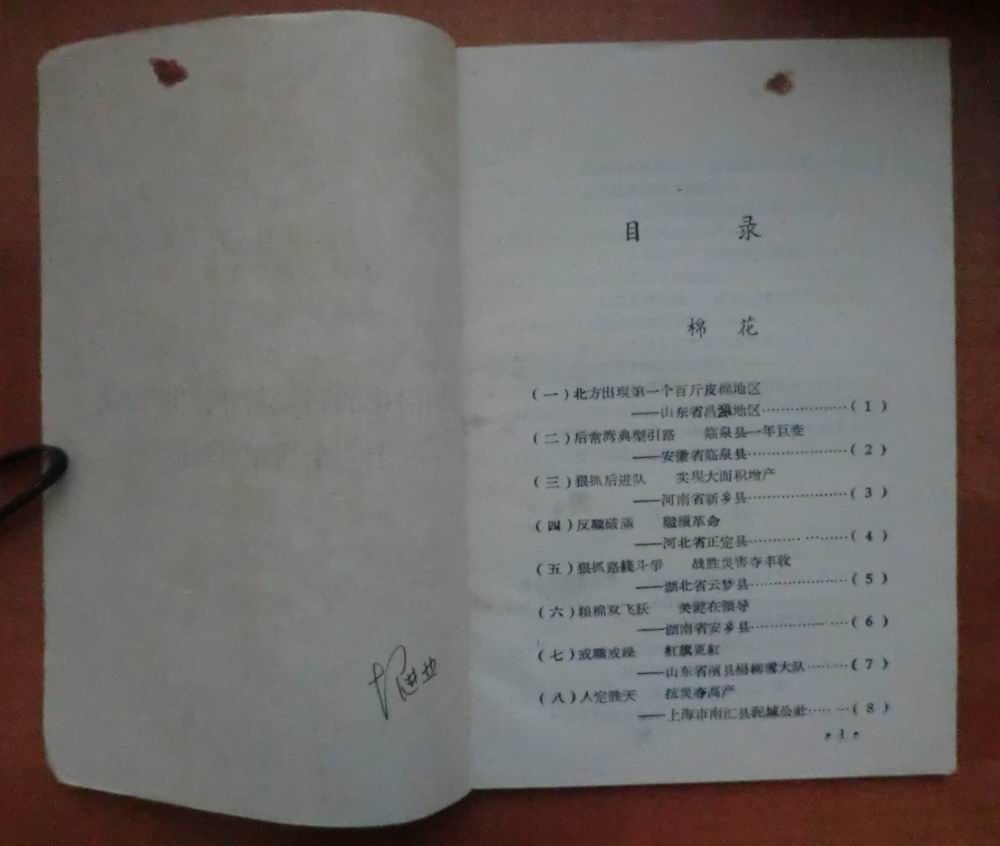 目 录
棉 花
(一)北方出现第一个百斤皮棉地区
——山东省昌潍地区………………( 1 )
(二)后常湾典型引路 临泉县一年巨变
——安徽省临泉县…………………( 2 )
(三)狠抓后进队 实现大面积增产
——河南省新乡县…………………( 3 )
(四)反驕破滿 繼續革命
——河北省正定县………… ……( 4 )
(五)狠抓路綫斗爭 战胜災害夺丰收
——湖北省云梦县…………………( 5 )
(六)粮棉双飞跃 关鍵在領导
——湖南省安乡县…………………( 6 )
(七)戒驕戒躁 紅旗更紅
——山东省 县楊柳雪大队………( 7 )
(八)人定胜天 抗災夺高产
——上海市南汇县泥城公社…… …( 8 )
• 1 •
进业